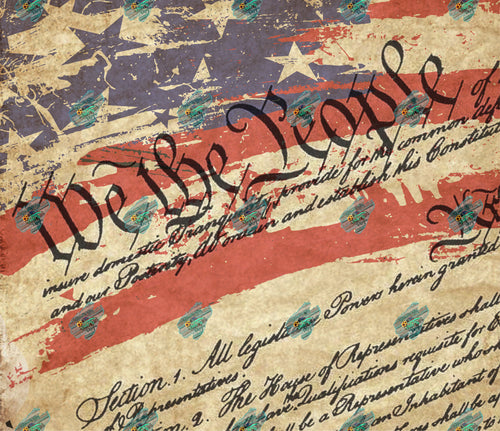 We the People of
insure domestic Tranquility, provide for the common
and our Posterity, do ordain and establish this Constitu
Section. 1. All legislative Powers herein granted
of Representatives.
2. The House of Representatives shall
have the Qualifications requisite for
shall be a Representative who sh
an Inhabitant of